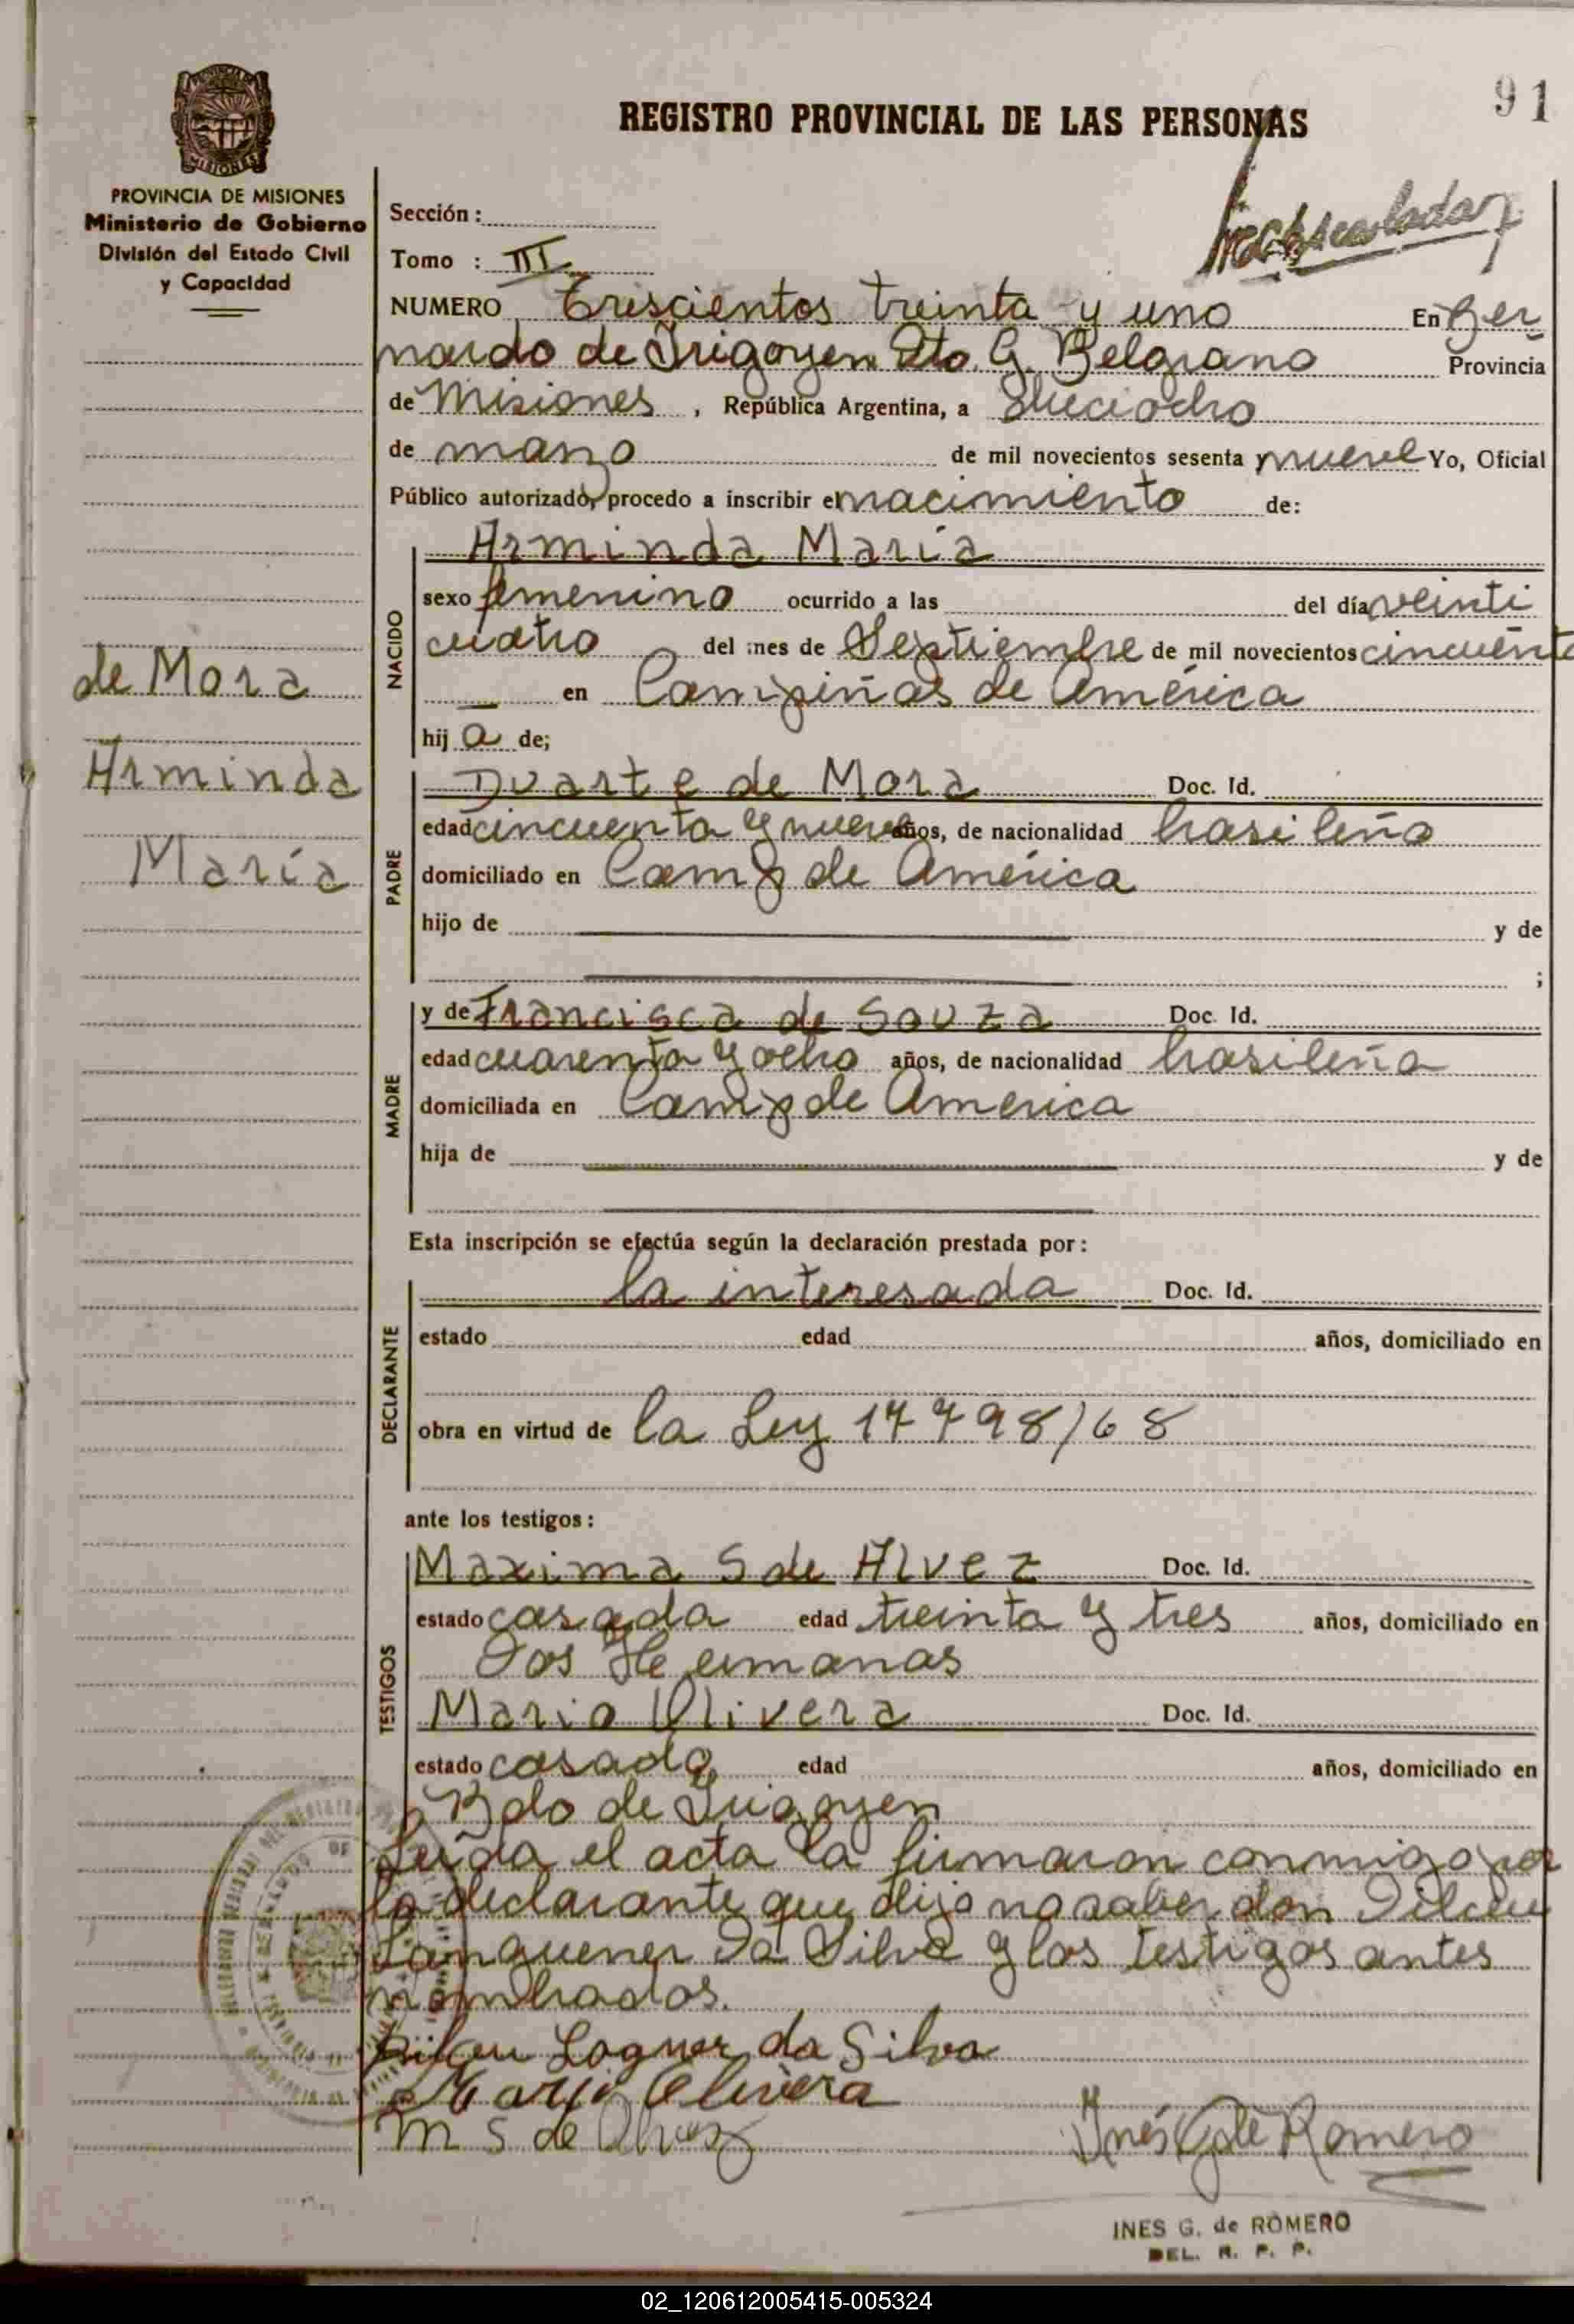 91
REGISTRO PROVINCIAL DE LAS PERSONAS
PROVINCIA DE MISIONES
Ministerio de Gobierno
División del Estado Civil
y Capacidad
Sección:
Tomo : III
NUMERO Trescientos treinta y uno En Ber
nardo de Irigoyen Dto. G. Belgrano Provincia
de Misiones, República Argentina, a dieciocho
de marzo de mil novecientos sesenta y nueve Yo, Oficial
Público autorizado, procedo a inscribir el nacimiento de:
NACIDO
Arminda María
sexo femenino ocurrido a las del día veinti
cuatro del mes de Septiembre de mil novecientos cincuenta
en Campiñas de América
hija de;
de Mora
Arminda
María
PADRE
Duarte de Mora Doc. Id.
edad cincuenta y nueve años, de nacionalidad brasileño
domiciliado en Camp de América
hijo de y de
;
MADRE
y de Francisca de Souza Doc. Id.
edad cuarenta y ocho años, de nacionalidad brasileña
domiciliada en Camp de America
hija de y de
Esta inscripción se efectúa según la declaración prestada por:
DECLARANTE
la interesada Doc. Id.
estado edad años, domiciliado en
obra en virtud de la Ley 17798/68
ante los testigos:
TESTIGOS
Maxima S de Alvez Doc. Id.
estado casada edad treinta y tres años, domiciliado en
Dos Hermanas
Mario Olivera Doc. Id.
estado casado edad años, domiciliado en
Bdo de Irigoyen
Leída el acta la firmaron conmigo por
la declarante que dijo no saber don Dilceu
Langguener Da Silva y los testigos antes
nombrados.
Dilceu Lagner da Silva
Mario Olivera
M S de Alvez
Inés G de Romero
INES G. de ROMERO
DEL. R. P. P.
02_120612005415-005324